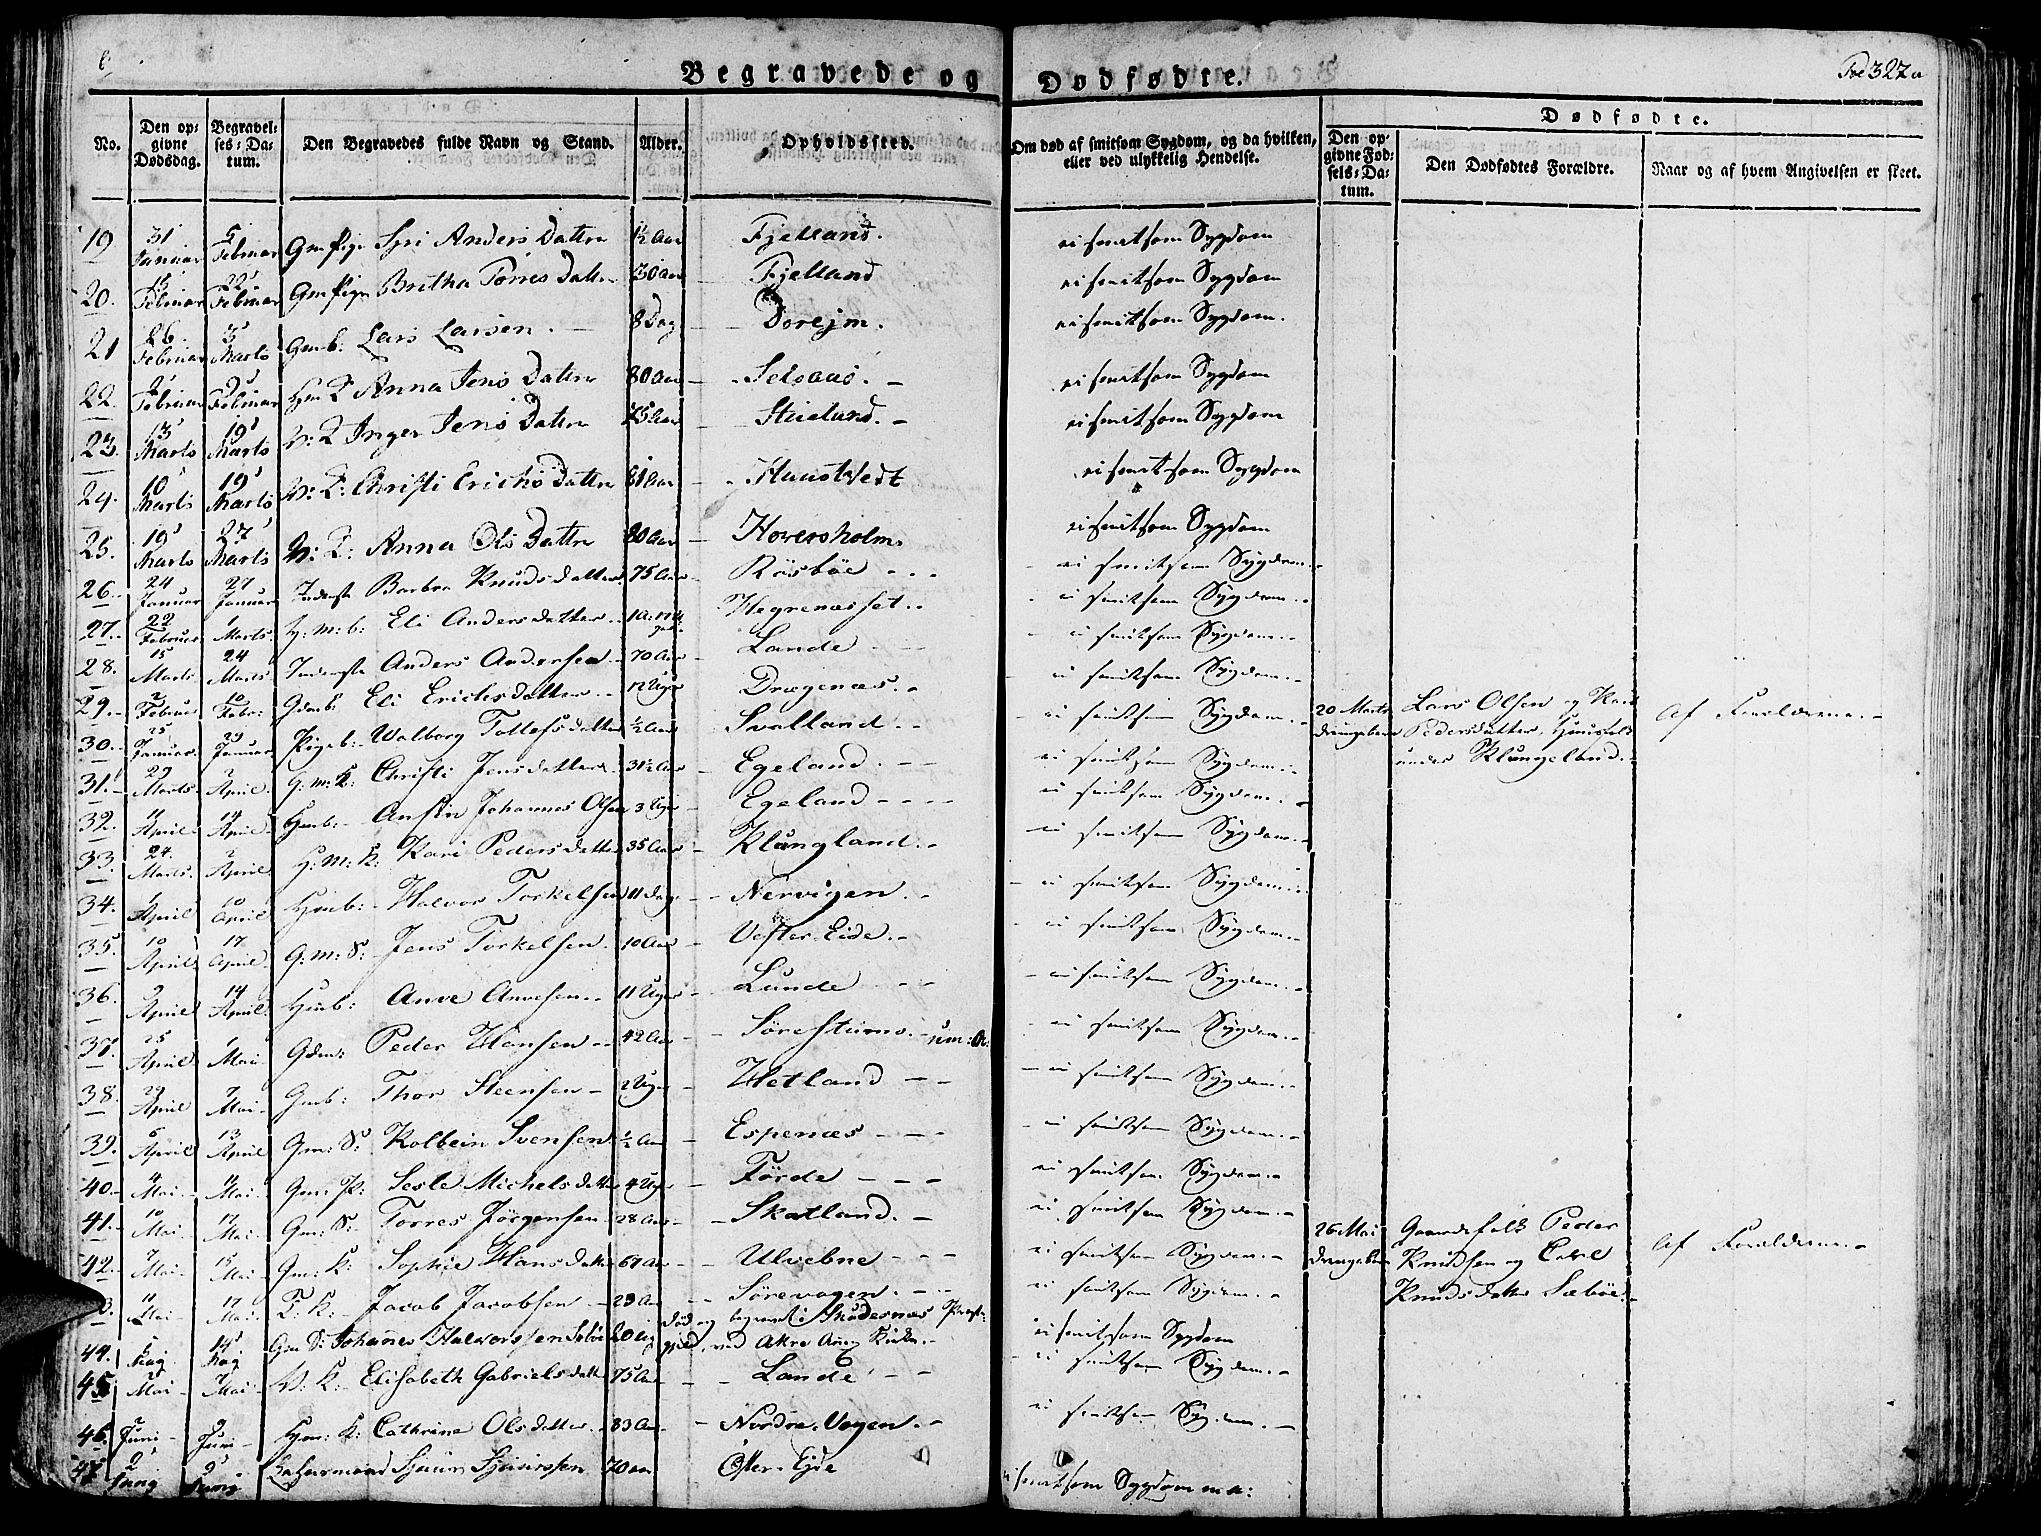 Begravede og Dødfødte.
327
No.
Den opgivne Dødsdag.
Begravelses-Datum.
Den Begravedes fulde Navn og Stand.
Alder.
Opholdssted.
Om død af smitsom Sygdom, og da hvilken, eller ved ulykkelig Hendelse.
Dødfødte.
Den opgivne Fødsels-Datum.
Den Dødfødtes Forældre.
Naar og af hvem Angivelsen er skeet.
19 31 Januar 5 Februar Siri Anders Datter 1½ Aar Fjelland. ei smitsom Sygdom
20. Februar 22 Februar Britha Torres Datter 30 Aar Fjelland ei smitsom Sygdom
21 26 Februar 3 Marts Gmb: Lars Larsen. 8 Dag Dorejm. ei smitsom Sygdom.
22. Februar Februar Anna Jens Datter 80 Aar Selsaas. ei smitsom Sygdom
23. 13 Marts 19 Marts Inger Jens Datter 75 Aar Stueland. ei smitsom Sygdom
24. 10 Marts 19 Marts Christi Erichs Datter 81 Aar ei smitsom Sygdom
25. 19 Marts 27 Marts Anna Ols Datter 80 Aar Hoversholm. ei smitsom Sygdom
26. 24 Januar 27 Januar Inderste Barbra Knudsdatter 75 Aar Risbøe ei smitsom Sygdom
27. 22 Februar 1 Marts H: m: b: Eli Andersdatter Hegrenæsset. ei smitsom Sygdom
28. 15 Marts 24 Marts Inderste Anders Andersen 70 Aar Lande ei smitsom Sygdom
29. 2 Februar 10 Febr: Eli Erichsdatter 12 Uger Drægenæs. ei smitsom Sygdom
30. 25 Januar 29 Januar Pigeb: Walborg Tollefsdatter ½ Aar Svalland ei smitsom Sygdom
20 Marts Drengebarn Lars Olsen og Kari Pedersdatter, Huusfolk under Klungeland. Af Forældrene.
31. 29 Marts 2 April G: m: K: Christi Jensdatter 31½ Aar Egeland. ei smitsom Sygdom
32. 11 April 14 April Hmb: Johannes Olsen 3 Uger Egeland ei smitsom Sygdom
33. 24. Marts 2 April H: m: K: Kari Pedersdatter 35 Aar Klungland. ei smitsom Sygdom
34. 1 April 10 April Hmb: Halvor Torkelsen 11 Dage Nervigen. ei smitsom Sygdom
35. 10 April 17 April G: m: S: Jens Torkelsen. 10 Aar Vester-Eide. ei smitsom Sygdom
36. 9 April 14 April Hmb: Anve Anvesen. 11 Uger Lunde ei smitsom Sygdom
37. 25 April 1 Mai Gdm: Peder Hansen 42 Aar ei smitsom Sygdom
38. 29 April 7 Mai Gmb: Thor Steensen 2 Uger Hetland ei smitsom Sygdom
39. 6 April 13 April Gm: S: Kolbein Svensen ½ Aar Espenæs ei smitsom Sygdom
40. 4 Mai 11 Mai Gm: P: Sesle Michelsdatter 4 Uger Førde ei smitsom Sygdom
41. 10 Mai 17 Mai Gm: S: Torres Jørgensen 28 Aar Skatland. ei smitsom Sygdom
42. 7 Mai 15 Mai Gm: K: Sophie Hansdatter 67 Aar Ulvebne ei smitsom Sygdom
26 Mai Drengebarn Gaardefolk Peder Knudsen og Knudsdatter Sæbøe. Af Forældrene.
11 Mai 17 Mai Jacob Jacobsen 23 Aar Sørevogen. ei smitsom Sygdom
44. Maj 14 Maj Gm S: Johannes Halvorssen 20 død og begravet i Skudesnæs Præstegjeld, ved Akre Kirke. ei smitsom Sygdom
45 Mai 7 Mai Elisabeth Gabrielsdatter 75 Aar Lande ei smitsom Sygdom
46. 2 Juni 9 Juni Hm: K: Cathrine Olsdatter 83 Aar Nordre-Vogen. ei smitsom Sygdom
47 2 Junij 9 Junij Sjuur Sjuurssen 70 Aar Øster-Ejde ei smitsom Sygdom